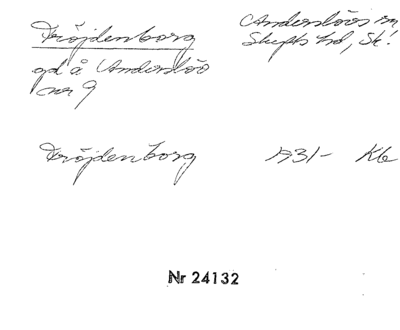 Fröjdenborg
gd å Anderslöv
nr 9
Anderslövs sn
Skytts hd, Sk.
Fröjdenborg 1931- Kb
Nr 24132